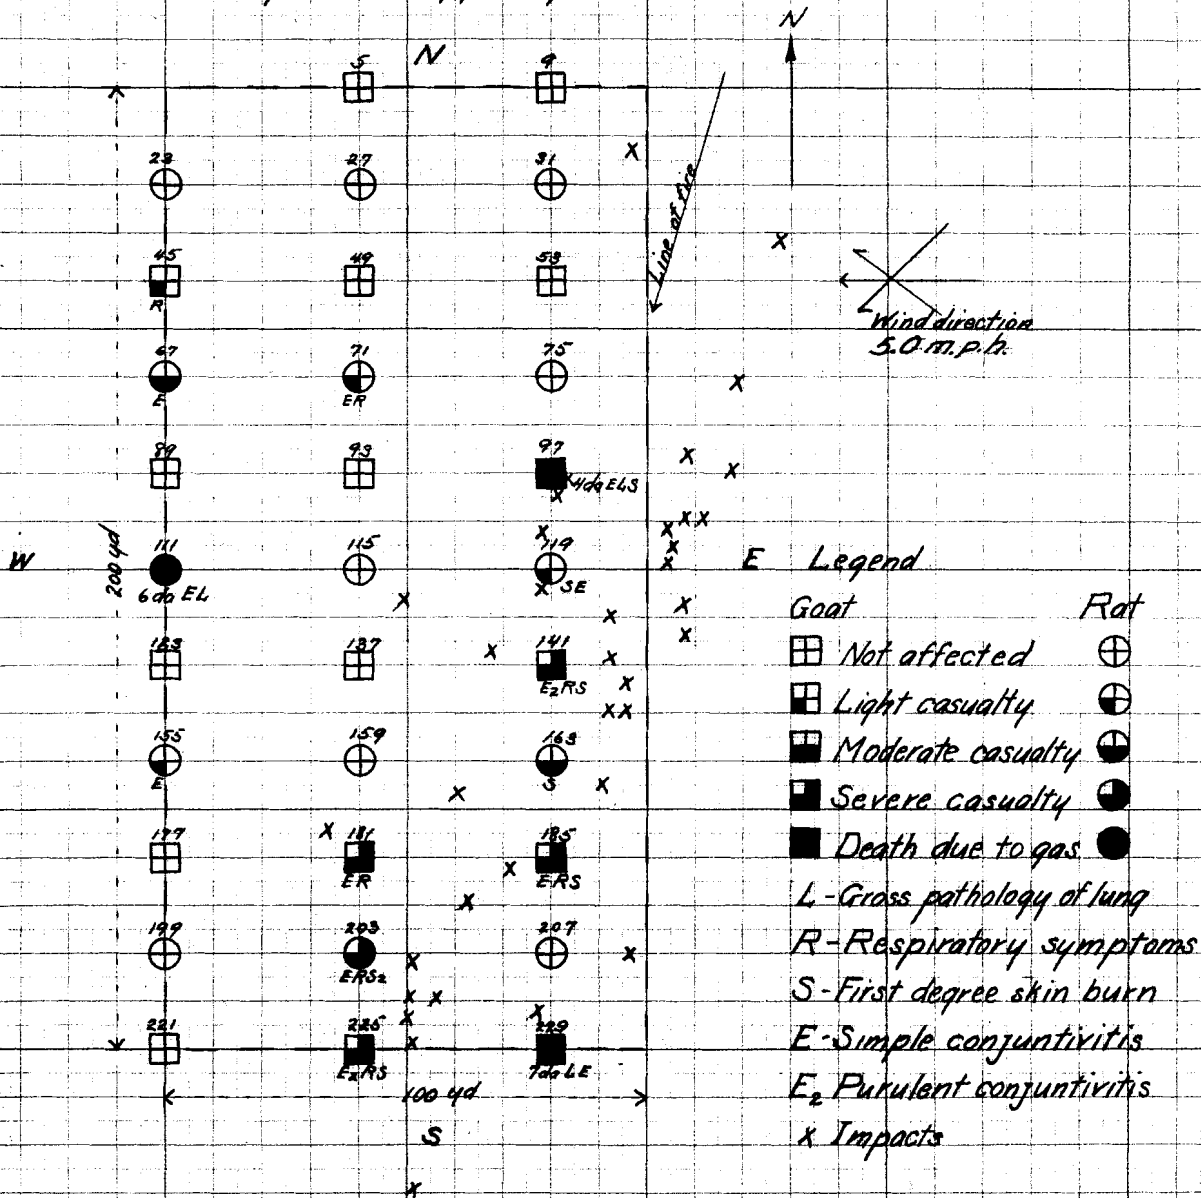 N
N
5 9
23 27 31
Line of fire
45 49 53
R
Wind direction
5.0 m.p.h.
67 71 75
E ER
89 93 97
4da ELS
200 yd
W
111 115 119
E
6da EL
SE
133 137 141
E₂RS
155 159 163
E S
177 181 185
ER ERS
199 203 207
ERS₂
221 225 229
E₂RS 7da LE
100 yd
S
Legend
Goat Rat
Not affected
Light casualty
Moderate casualty
Severe casualty
Death due to gas
L - Gross pathology of lung
R - Respiratory symptoms
S - First degree skin burn
E - Simple conjuntivitis
E₂ Purulent conjuntivitis
x Impacts